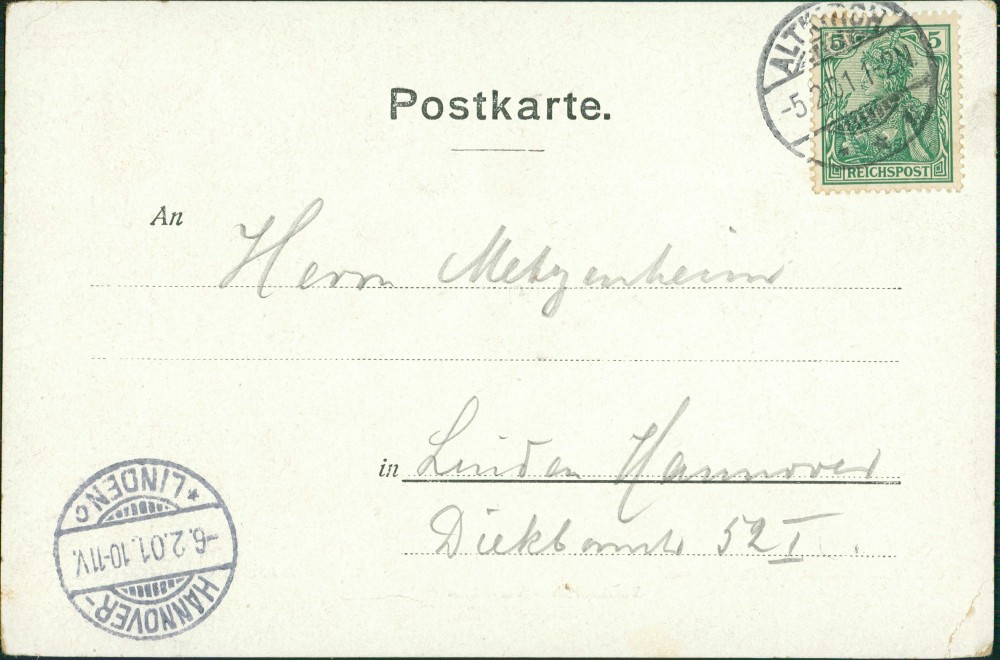 Postkarte.
ALTKIRCH
-5.2.01.1-2N
5 5
REICHSPOST
An Herrn Metzenheim
in Linden Hannover
52 I.
*LINDEN
-6.2.01.10-11V.
HANNOVER-